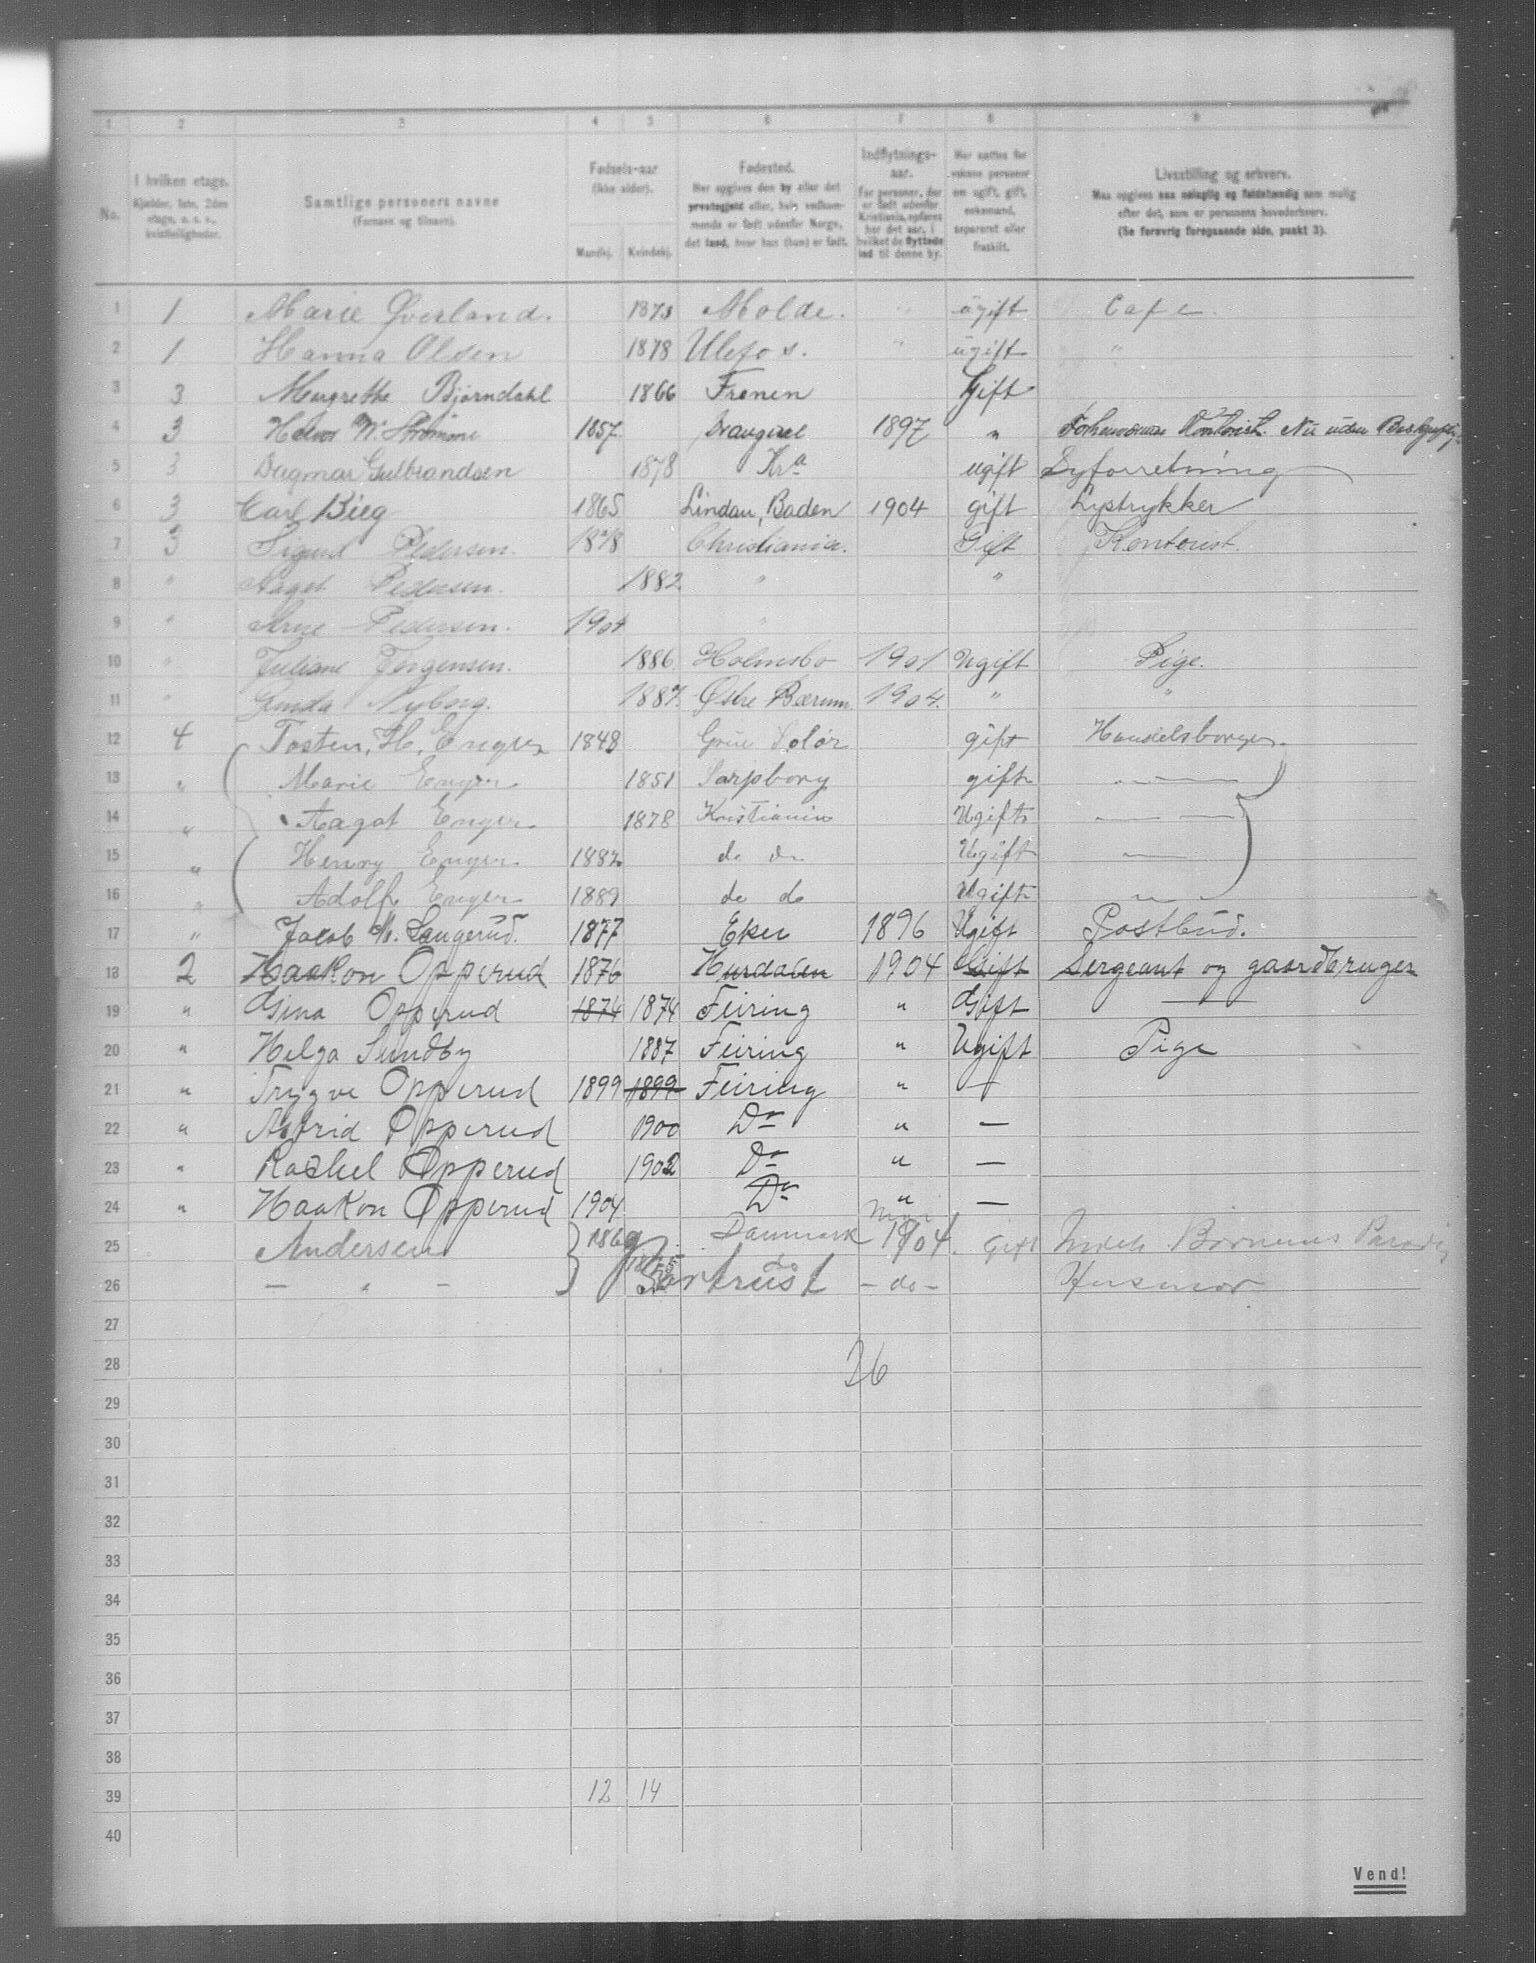 1 2 3 4 5 6 7 8 9
No.
I hvilken etage. Kjelder, 1ste, 2den etage, o. s. v., kvistleiligheder.
Samtlige personers navne (Fornavn og tilnavn).
Fødsels-aar (ikke alder). Mandkj. Kvindekj.
Fødested. Her opgives den by eller det præstegjeld eller, hvis vedkommende er født udenfor Norge, det land, hvor han (hun) er født.
Indflytnings-aar. For personer, der er født udenfor Kristiania, opføres her det aar, i hvilket de flyttede ind til denne by.
Her sættes for voksne personer om ugift, gift, enkemand, separeret eller fraskilt.
Livsstilling og erhverv. Maa opgives saa nøiagtig og fuldstændig som mulig efter det, som er personens hovederhverv. (Se forøvrig foregaaende side, punkt 3).
1 1 Marie Øverland. 1873 Molde. " ugift Cafe.
2 1 Hanna Olsen 1878 Ulefos. " ugift "
3 3 Margrethe Bjørndahl 1866 Fronen Gift
4 3 W. Strømme 1857 1897 " Kontorist. Nu uden
5 3 Dagmar Gulbrandsen 1878 Kra ugift Syforretning
6 3 Carl Bieg 1865 Lindau, Baden 1904 gift Lystrykker
7 3 Sigurd Pedersen. 1878 Christiania. Gift Kontorist.
8 " Aagot Pedersen. 1882 " "
9 " Arne Pedersen. 1904 "
10 " Juliane Jørgensen. 1886 Holmsbo 1901 Ugift Pige.
11 " Nyborg. 1887 Østre Bærum 1904. " "
12 4 Tosten. H. Enger 1848 Grue Solør gift Handelsborger.
13 " Marie Enger 1851 Sarpborg gift — — —
14 " Aagot Enger 1878 Kristiania Ugift — — —
15 " Henry Enger 1882 do do Ugift —
16 " Adolf Enger 1889 do do Ugift — —
17 " Jacob Langerud. 1877 Eker 1896 Ugift Postbud.
18 2 Haakon Opperud 1876 Hurdalen 1904 Gift Sergeant og gaardbruger
19 " Gina Opperud 1874 1874 Feiring " Gift —
20 " Helga Sundby 1887 Feiring " Ugift Pige
21 " Trygve Opperud 1899 1899 Feiring " —
22 " Astrid Opperud 1900 Do " —
23 " Rachel Opperud 1902 Do " —
24 " Haakon Opperud 1904 Do " —
25 Andersen 1869 Danmark 1904. Gift Børnenes
26 — " — do — do — Husmor
27
28 26
29
30
31
32
33
34
35
36
37
38
39 12 14
40
Vend!